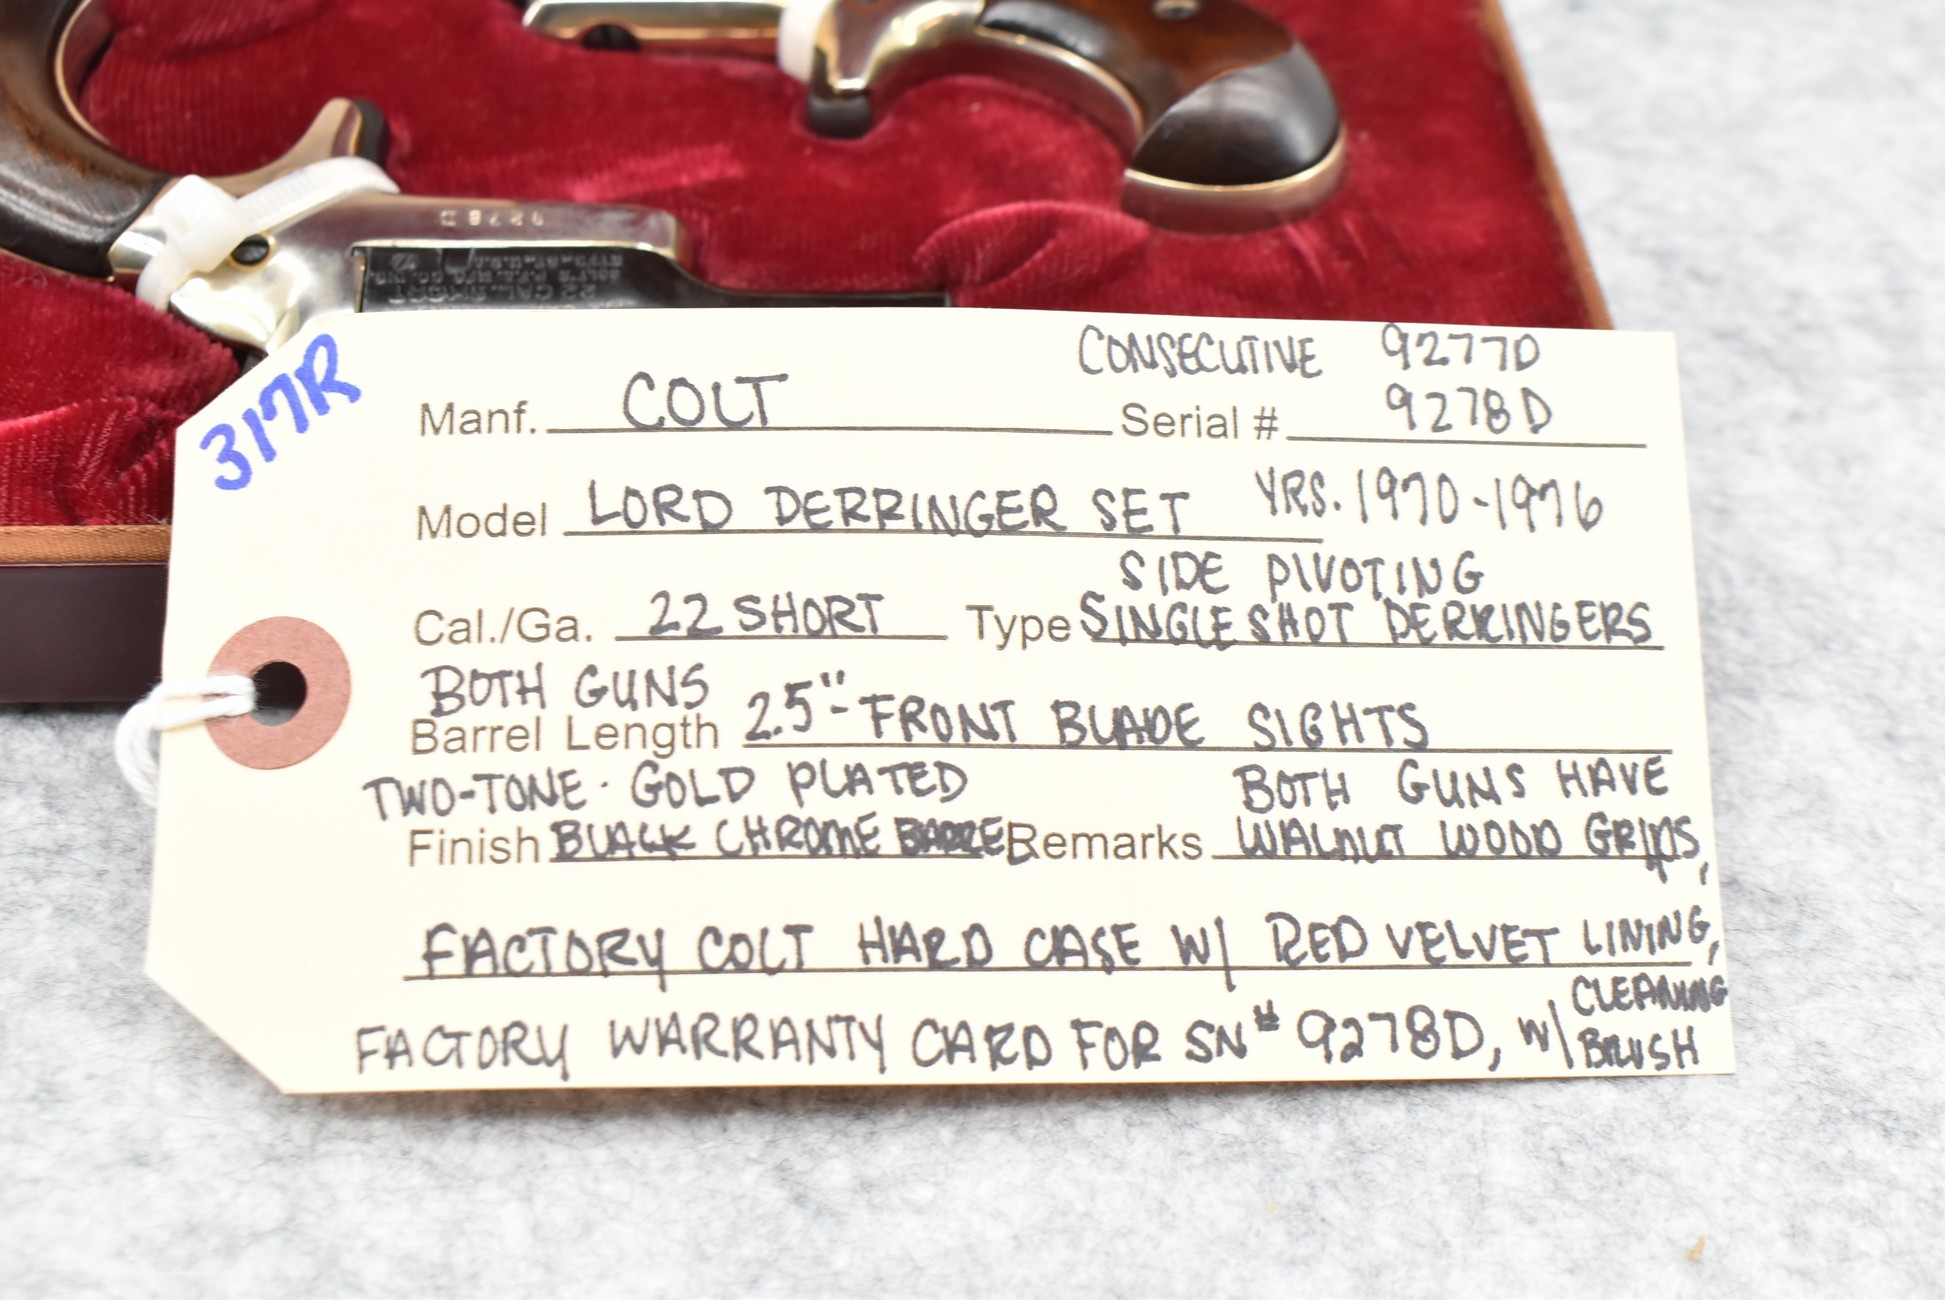 9278D
22 CAL. SHORT
COLT'S P.F.A. MFG. CO. INC.
317R
CONSECUTIVE 9277D
Manf. COLT Serial # 9278D
Model LORD DERRINGER SET YRS. 1970-1976
SIDE PIVOTING
Cal./Ga. 22 SHORT Type SINGLE SHOT DERRINGERS
BOTH GUNS
Barrel Length 2.5"- FRONT BLADE SIGHTS
TWO-TONE · GOLD PLATED BOTH GUNS HAVE
Finish BLACK CHROME BARREL Remarks WALNUT WOOD GRIPS,
FACTORY COLT HARD CASE W/ RED VELVET LINING,
FACTORY WARRANTY CARD FOR SN# 9278D, W/ CLEANING
BRUSH